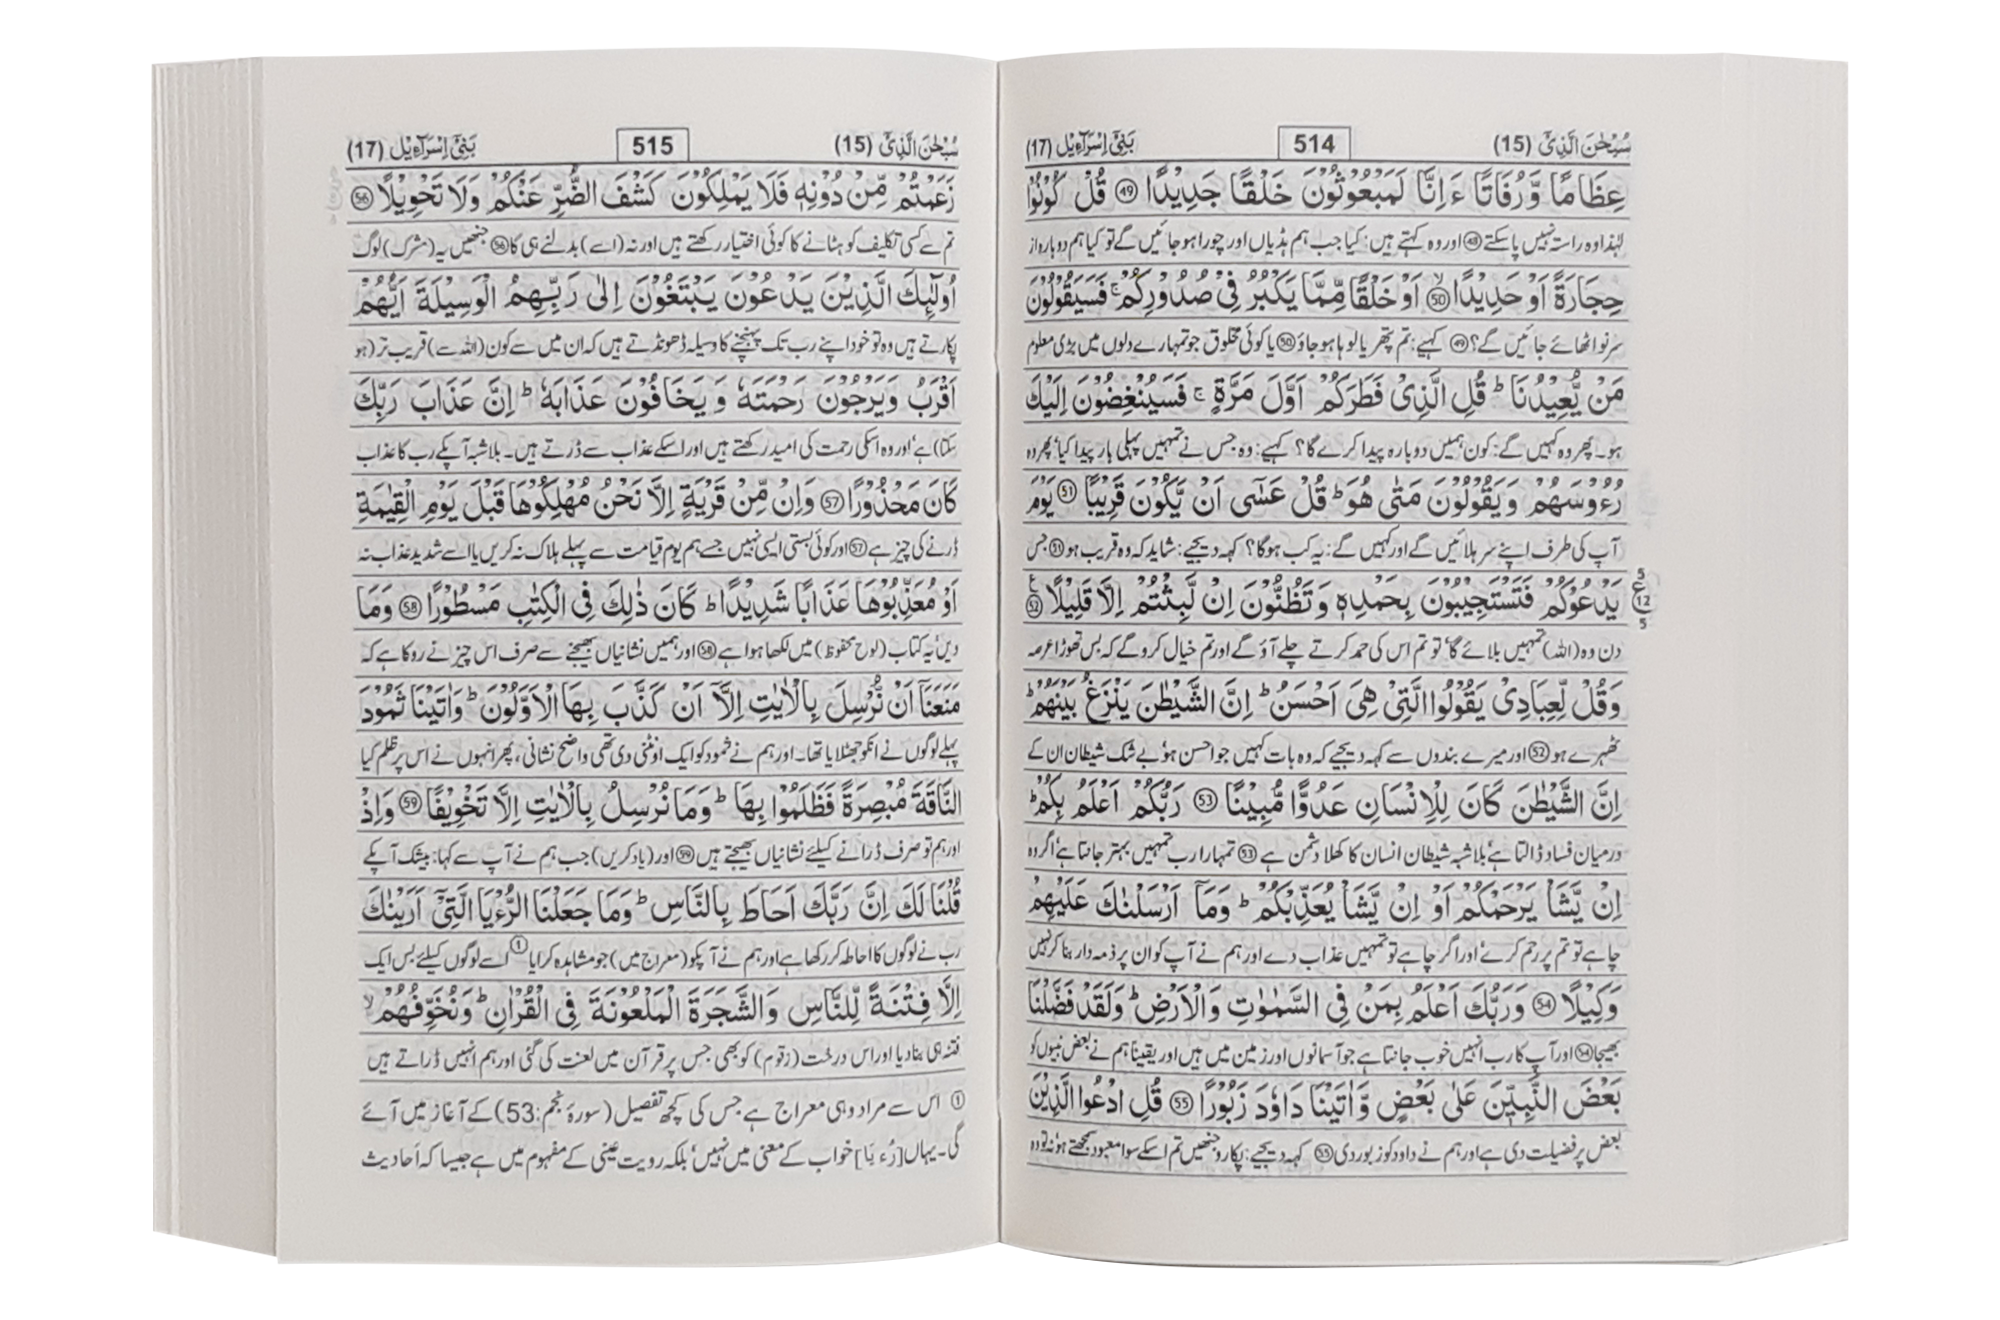 سُبْحٰنَ الَّذِیْٓ (15) 514 بَنِیْٓ اِسْرَآءِیْل (17)
عِظَامًا وَّرُفَاتًا ءَاِنَّا لَمَبْعُوْثُوْنَ خَلْقًا جَدِیْدًا ﴿49﴾ قُلْ كُوْنُوْا
لہٰذا وہ راستہ نہیں پاسکتے ﴿48﴾ اور وہ کہتے ہیں: کیا جب ہم ہڈیاں اور چورا ہوجائیں گے تو کیا ہم دوبارہ از
حِجَارَةً اَوْ حَدِیْدًا ﴿50﴾ اَوْ خَلْقًا مِّمَّا یَكْبُرُ فِیْ صُدُوْرِكُمْ ۚ فَسَیَقُوْلُوْنَ
سرنو اٹھائے جائیں گے؟ ﴿49﴾ کہیے: تم پتھر یا لوہا ہو جاؤ ﴿50﴾ یا کوئی مخلوق جو تمہارے دلوں میں بڑی معلوم
مَنْ یُّعِیْدُنَا ؕ قُلِ الَّذِیْ فَطَرَكُمْ اَوَّلَ مَرَّةٍ ۚ فَسَیُنْغِضُوْنَ اِلَیْكَ
ہو۔ پھر وہ کہیں گے: کون ہمیں دوبارہ پیدا کرے گا؟ کہیے: وہ جس نے تمہیں پہلی بار پیدا کیا' پھر وہ
رُءُوْسَهُمْ وَ یَقُوْلُوْنَ مَتٰی هُوَ ؕ قُلْ عَسٰۤی اَنْ یَّكُوْنَ قَرِیْبًا ﴿51﴾ یَوْمَ
آپ کی طرف اپنے سر ہلائیں گے اور کہیں گے: یہ کب ہوگا؟ کہہ دیجیے: شاید کہ وہ قریب ہو ﴿51﴾ جس
یَدْعُوْكُمْ فَتَسْتَجِیْبُوْنَ بِحَمْدِهٖ وَ تَظُنُّوْنَ اِنْ لَّبِثْتُمْ اِلَّا قَلِیْلًا ﴿52﴾ ع 5 12 5
دن وہ (اللہ) تمہیں بلائے گا' تو تم اس کی حمد کرتے چلے آؤ گے اور تم خیال کرو گے کہ بس تھوڑا عرصہ
وَقُلْ لِّعِبَادِیْ یَقُوْلُوا الَّتِیْ هِیَ اَحْسَنُ ؕ اِنَّ الشَّیْطٰنَ یَنْزَغُ بَیْنَهُمْ ؕ
ٹھہرے ہو ﴿52﴾ اور میرے بندوں سے کہہ دیجیے کہ وہ بات کہیں جو احسن ہو' بے شک شیطان ان کے
اِنَّ الشَّیْطٰنَ كَانَ لِلْاِنْسَانِ عَدُوًّا مُّبِیْنًا ﴿53﴾ رَبُّكُمْ اَعْلَمُ بِكُمْ ؕ
درمیان فساد ڈالتا ہے' بلاشبہ شیطان انسان کا کھلا دشمن ہے ﴿53﴾ تمہارا رب تمہیں بہتر جانتا ہے' اگر وہ
اِنْ یَّشَاْ یَرْحَمْكُمْ اَوْ اِنْ یَّشَاْ یُعَذِّبْكُمْ ؕ وَمَاۤ اَرْسَلْنٰكَ عَلَیْهِمْ
چاہے تو تم پر رحم کرے' اور اگر چاہے تو تمہیں عذاب دے اور ہم نے آپ کو ان پر ذمہ دار بنا کر نہیں
وَكِیْلًا ﴿54﴾ وَرَبُّكَ اَعْلَمُ بِمَنْ فِی السَّمٰوٰتِ وَالْاَرْضِ ؕ وَلَقَدْ فَضَّلْنَا
بھیجا ﴿54﴾ اور آپ کا رب انہیں خوب جانتا ہے جو آسمانوں اور زمین میں ہیں اور یقیناً ہم نے بعض نبیوں کو
بَعْضَ النَّبِیّٖنَ عَلٰی بَعْضٍ وَّاٰتَیْنَا دَاوٗدَ زَبُوْرًا ﴿55﴾ قُلِ ادْعُوا الَّذِیْنَ
بعض پر فضیلت دی ہے اور ہم نے داود کو زبور دی ﴿55﴾ کہہ دیجیے: پکارو جنھیں تم اسکے سوا معبود سمجھتے ہو' نہ تو وہ
سُبْحٰنَ الَّذِیْٓ (15) 515 بَنِیْٓ اِسْرَآءِیْل (17)
زَعَمْتُمْ مِّنْ دُوْنِهٖ فَلَا یَمْلِكُوْنَ كَشْفَ الضُّرِّ عَنْكُمْ وَلَا تَحْوِیْلًا ﴿56﴾
تم سے کسی تکلیف کو ہٹانے کا کوئی اختیار رکھتے ہیں اور نہ (اسے) بدلنے ہی کا ﴿56﴾ جنھیں یہ (مشرک) لوگ
اُولٰٓئِكَ الَّذِیْنَ یَدْعُوْنَ یَبْتَغُوْنَ اِلٰی رَبِّهِمُ الْوَسِیْلَةَ اَیُّهُمْ
پکارتے ہیں وہ تو خود اپنے رب تک پہنچنے کا وسیلہ ڈھونڈتے ہیں کہ ان میں سے کون (اللہ سے) قریب تر (ہو
اَقْرَبُ وَیَرْجُوْنَ رَحْمَتَهٗ وَ یَخَافُوْنَ عَذَابَهٗ ؕ اِنَّ عَذَابَ رَبِّكَ
سکتا) ہے' اور وہ اسکی رحمت کی امید رکھتے ہیں اور اسکے عذاب سے ڈرتے ہیں۔ بلاشبہ آپکے رب کا عذاب
كَانَ مَحْذُوْرًا ﴿57﴾ وَاِنْ مِّنْ قَرْیَةٍ اِلَّا نَحْنُ مُهْلِكُوْهَا قَبْلَ یَوْمِ الْقِیٰمَةِ
ڈرنے کی چیز ہے ﴿57﴾ اور کوئی بستی ایسی نہیں جسے ہم یوم قیامت سے پہلے ہلاک نہ کریں یا اسے شدید عذاب نہ
اَوْ مُعَذِّبُوْهَا عَذَابًا شَدِیْدًا ؕ كَانَ ذٰلِكَ فِی الْكِتٰبِ مَسْطُوْرًا ﴿58﴾ وَمَا
دیں' یہ کتاب (لوح محفوظ) میں لکھا ہوا ہے ﴿58﴾ اور ہمیں نشانیاں بھیجنے سے صرف اس چیز نے روکا ہے کہ
مَنَعَنَاۤ اَنْ نُّرْسِلَ بِالْاٰیٰتِ اِلَّاۤ اَنْ كَذَّبَ بِهَا الْاَوَّلُوْنَ ؕ وَاٰتَیْنَا ثَمُوْدَ
پہلے لوگوں نے انکو جھٹلایا تھا۔ اور ہم نے ثمود کو ایک اونٹنی دی تھی واضح نشانی، پھر انہوں نے اس پر ظلم کیا
النَّاقَةَ مُبْصِرَةً فَظَلَمُوْا بِهَا ؕ وَمَا نُرْسِلُ بِالْاٰیٰتِ اِلَّا تَخْوِیْفًا ﴿59﴾ وَاِذْ
اور ہم تو صرف ڈرانے کیلئے نشانیاں بھیجتے ہیں ﴿59﴾ اور (یاد کریں) جب ہم نے آپ سے کہا: بیشک آپکے
قُلْنَا لَكَ اِنَّ رَبَّكَ اَحَاطَ بِالنَّاسِ ؕ وَمَا جَعَلْنَا الرُّءْیَا الَّتِیْۤ اَرَیْنٰكَ
رب نے لوگوں کا احاطہ کر رکھا ہے اور ہم نے آپکو (معراج میں) جو مشاہدہ کرایا ① اسے لوگوں کیلئے بس ایک
اِلَّا فِتْنَةً لِّلنَّاسِ وَالشَّجَرَةَ الْمَلْعُوْنَةَ فِی الْقُرْاٰنِ ؕ وَنُخَوِّفُهُمْ ۙ
فتنہ ہی بنا دیا اور اس درخت (زقوم) کو بھی جس پر قرآن میں لعنت کی گئی اور ہم انہیں ڈراتے ہیں
① اس سے مراد وہی معراج ہے جس کی کچھ تفصیل (سورۂ نجم: 53) کے آغاز میں آئے
گی۔ یہاں [رُءیَا] خواب کے معنی میں نہیں' بلکہ رویت عینی کے مفہوم میں ہے جیسا کہ اَحادیث